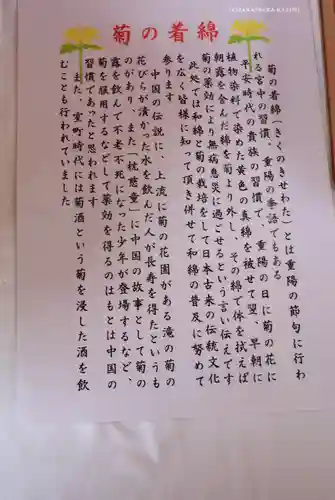 菊の着綿
菊の着綿（きくのきせわた）とは重陽の節句に行わ
れる宮中の習慣、重陽の季語でもある
平安時代の貴族の習慣で、重陽の日に菊の花に
植物染料で染めた黄色の真綿を被せて翌、早朝に
朝露を含んだ綿を菊より外し、その綿で体を拭えば
菊の薬効により無病息災に過ごせるという言い伝えです
此処では和綿と菊の栽培をして日本古来の伝統文化
を広く皆様に知って頂き併せて和綿の普及に努めて
参ります
中国の伝説に、上流に菊の花園がある滝の菊の
花びらが漬かった水を飲んだ人が長寿を得たというも
のがあり、また「枕慈童」に中国の故事として菊の
露を飲んで不老不死になった少年が登場するなど、
菊を服用するなどして薬効を得るのはもとは中国の
習慣であったと思われます
また、室町時代には菊酒という菊を浸した酒を飲
むことも行われていました